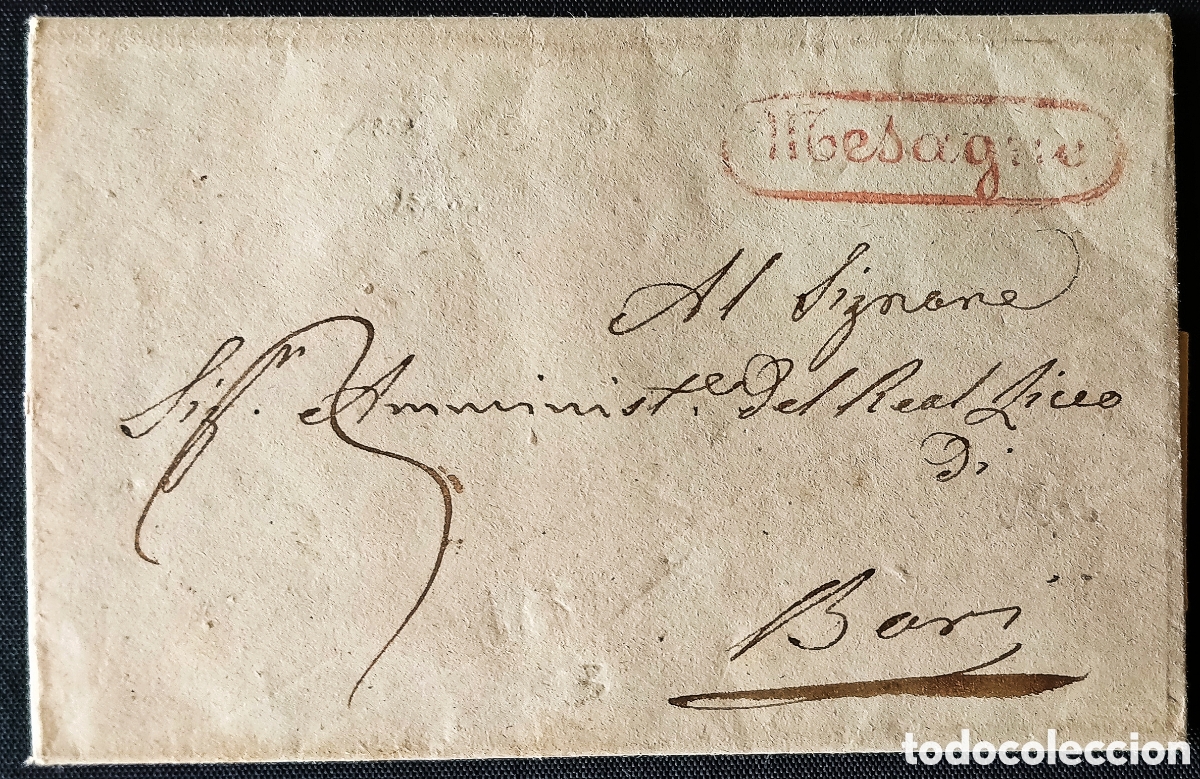 Mesagne
Al Signore
Sig.r Amminist.e Del Real Liceo
Di
Bari
3
todocoleccion